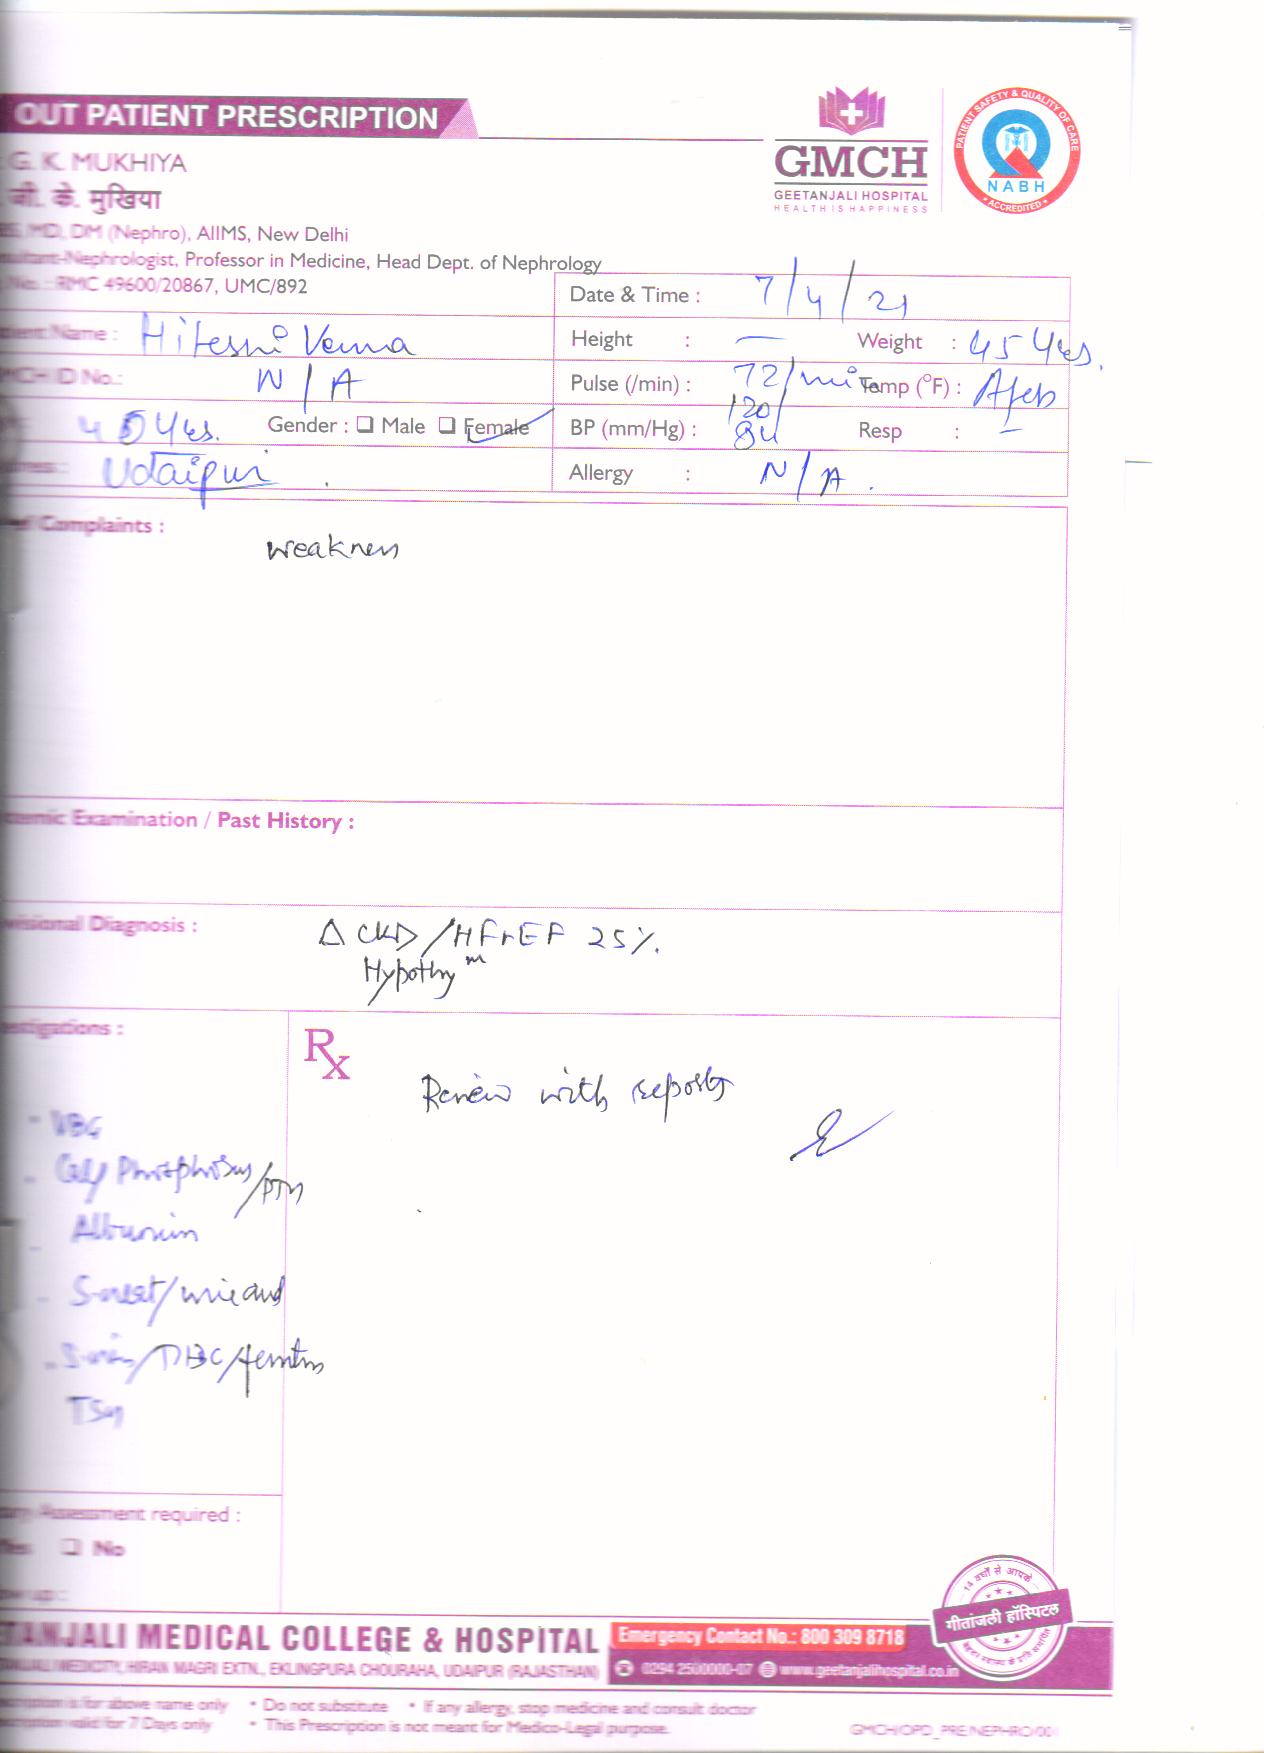 OUT PATIENT PRESCRIPTION
GMCH
GEETANJALI HOSPITAL
HEALTH IS HAPPINESS
PATIENT SAFETY & QUALITY OF CARE
NABH
ACCREDITED
G. K. MUKHIYA
जी. के. मुखिया
MD, DM (Nephro), AIIMS, New Delhi
-Nephrologist, Professor in Medicine, Head Dept. of Nephrology
No. : RMC 49600/20867, UMC/892
Date & Time : 7/4/21
Name : Hiteshi Verma
Height : — Weight : 45 Yrs.
ID No.: N/A
Pulse (/min) : 72/min Temp (°F) : Afeb
45 Yrs. Gender : ❑ Male ❑ Female
BP (mm/Hg) : 120/84 Resp : —
Udaipur
Allergy : N/A.
Complaints :
weakness
Examination / Past History :
Diagnosis :
Δ CKD/HFrEF 25%.
Hypothy m
Rx
Review with reports
- VBG
- Phosphorus/PTH
- Albumin
- /uric acid
- /TIBC/ferritin
TSH
Assessment required :
❑ No
MEDICAL COLLEGE & HOSPITAL
Emergency Contact No.: 800 309 8718
MEDICITY, HIRAN MAGRI EXTN., EKLINGPURA CHOURAHA, UDAIPUR (RAJASTHAN)
0294 2500000-07 www.geetanjalihospital.co.in
14 वर्षों से आपके
गीतांजली हॉस्पिटल
is for above name only * Do not substitute * If any allergy, stop medicine and consult doctor
valid for 7 Days only * This Prescription is not meant for Medico-Legal purpose.
GMCH/OPD_PRE/NEPHRO/00